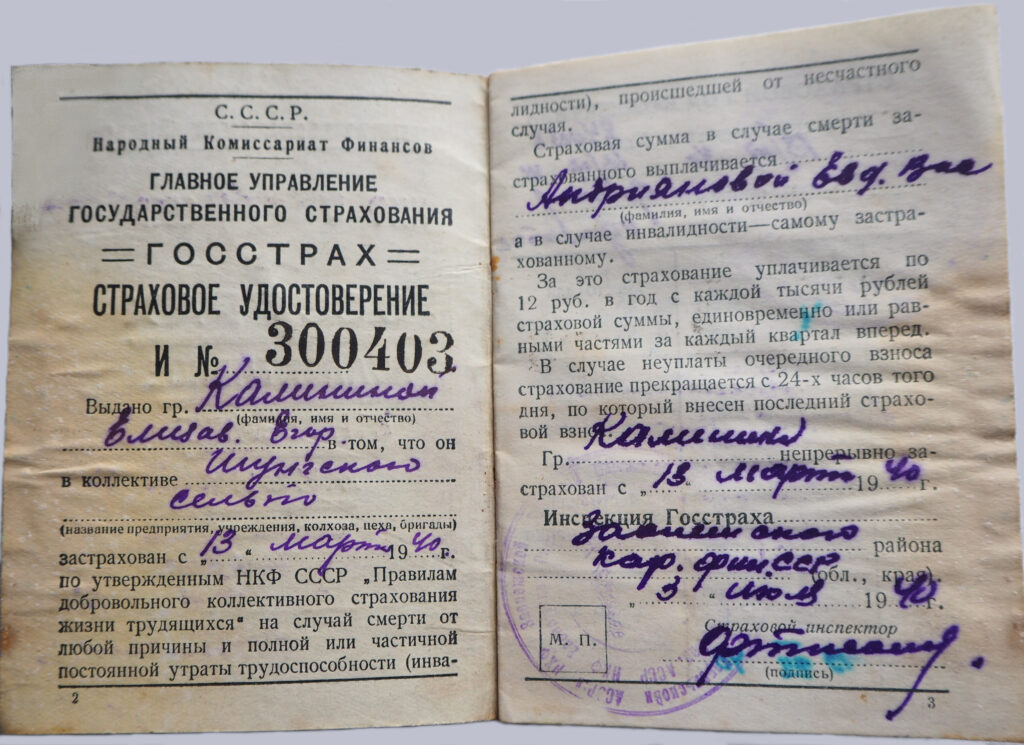 С. С. С. Р.
Народный Комиссариат Финансов
ГЛАВНОЕ УПРАВЛЕНИЕ
ГОСУДАРСТВЕННОГО СТРАХОВАНИЯ
=ГОССТРАХ=
СТРАХОВОЕ УДОСТОВЕРЕНИЕ
И № 300403
Выдано гр. Калининой
(фамилия, имя и отчество)
Елизав. Егор. в том, что он
в коллективе Шунгского
сельпо
(название предприятия, учреждения, колхоза, цеха, бригады)
застрахован с „13“ март 1940 г.
по утвержденным НКФ СССР „Правилам
добровольного коллективного страхования
жизни трудящихся“ на случай смерти от
любой причины и полной или частичной
постоянной утраты трудоспособности (инва-
2
лидности), происшедшей от несчастного
случая.
Страховая сумма в случае смерти за-
страхованного выплачивается
Андрияновой Евд. Вас
(фамилия, имя и отчество)
а в случае инвалидности—самому застра-
хованному.
За это страхование уплачивается по
12 руб. в год с каждой тысячи рублей
страховой суммы, единовременно или рав-
ными частями за каждый квартал вперед.
В случае неуплаты очередного взноса
страхование прекращается с 24-х часов того
дня, по который внесен последний страхо-
вой взнос.
Гр. Калинина непрерывно за-
страхован с „13 март 1940 г.
Инспекция Госстраха
Заонежского района
Кар. фин. ССР (обл., края).
„3“ июля 1940 г.
М. П.
Страховой инспектор
(подпись)
3